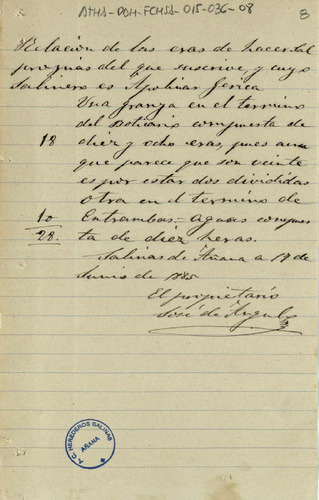 ATHA-DAH-FCHSS-015-036-08
8
Relacion de las eras de hacer sal
propias del que suscrive, y cuyo
salinero es Apolinar
Una granja en el termino
del Boticario compuesta de
18 diez y ocho eras, pues aun
que parece que son veinte
es por estar dos divididas
otra en el termino de
10 Entrambas-aguas compues
28. ta de diez heras.
Salinas de Añana a 17 de
Junio de 1885
El propietario
José de Angulo
T.C. HEREDEROS SALINAS
AÑANA